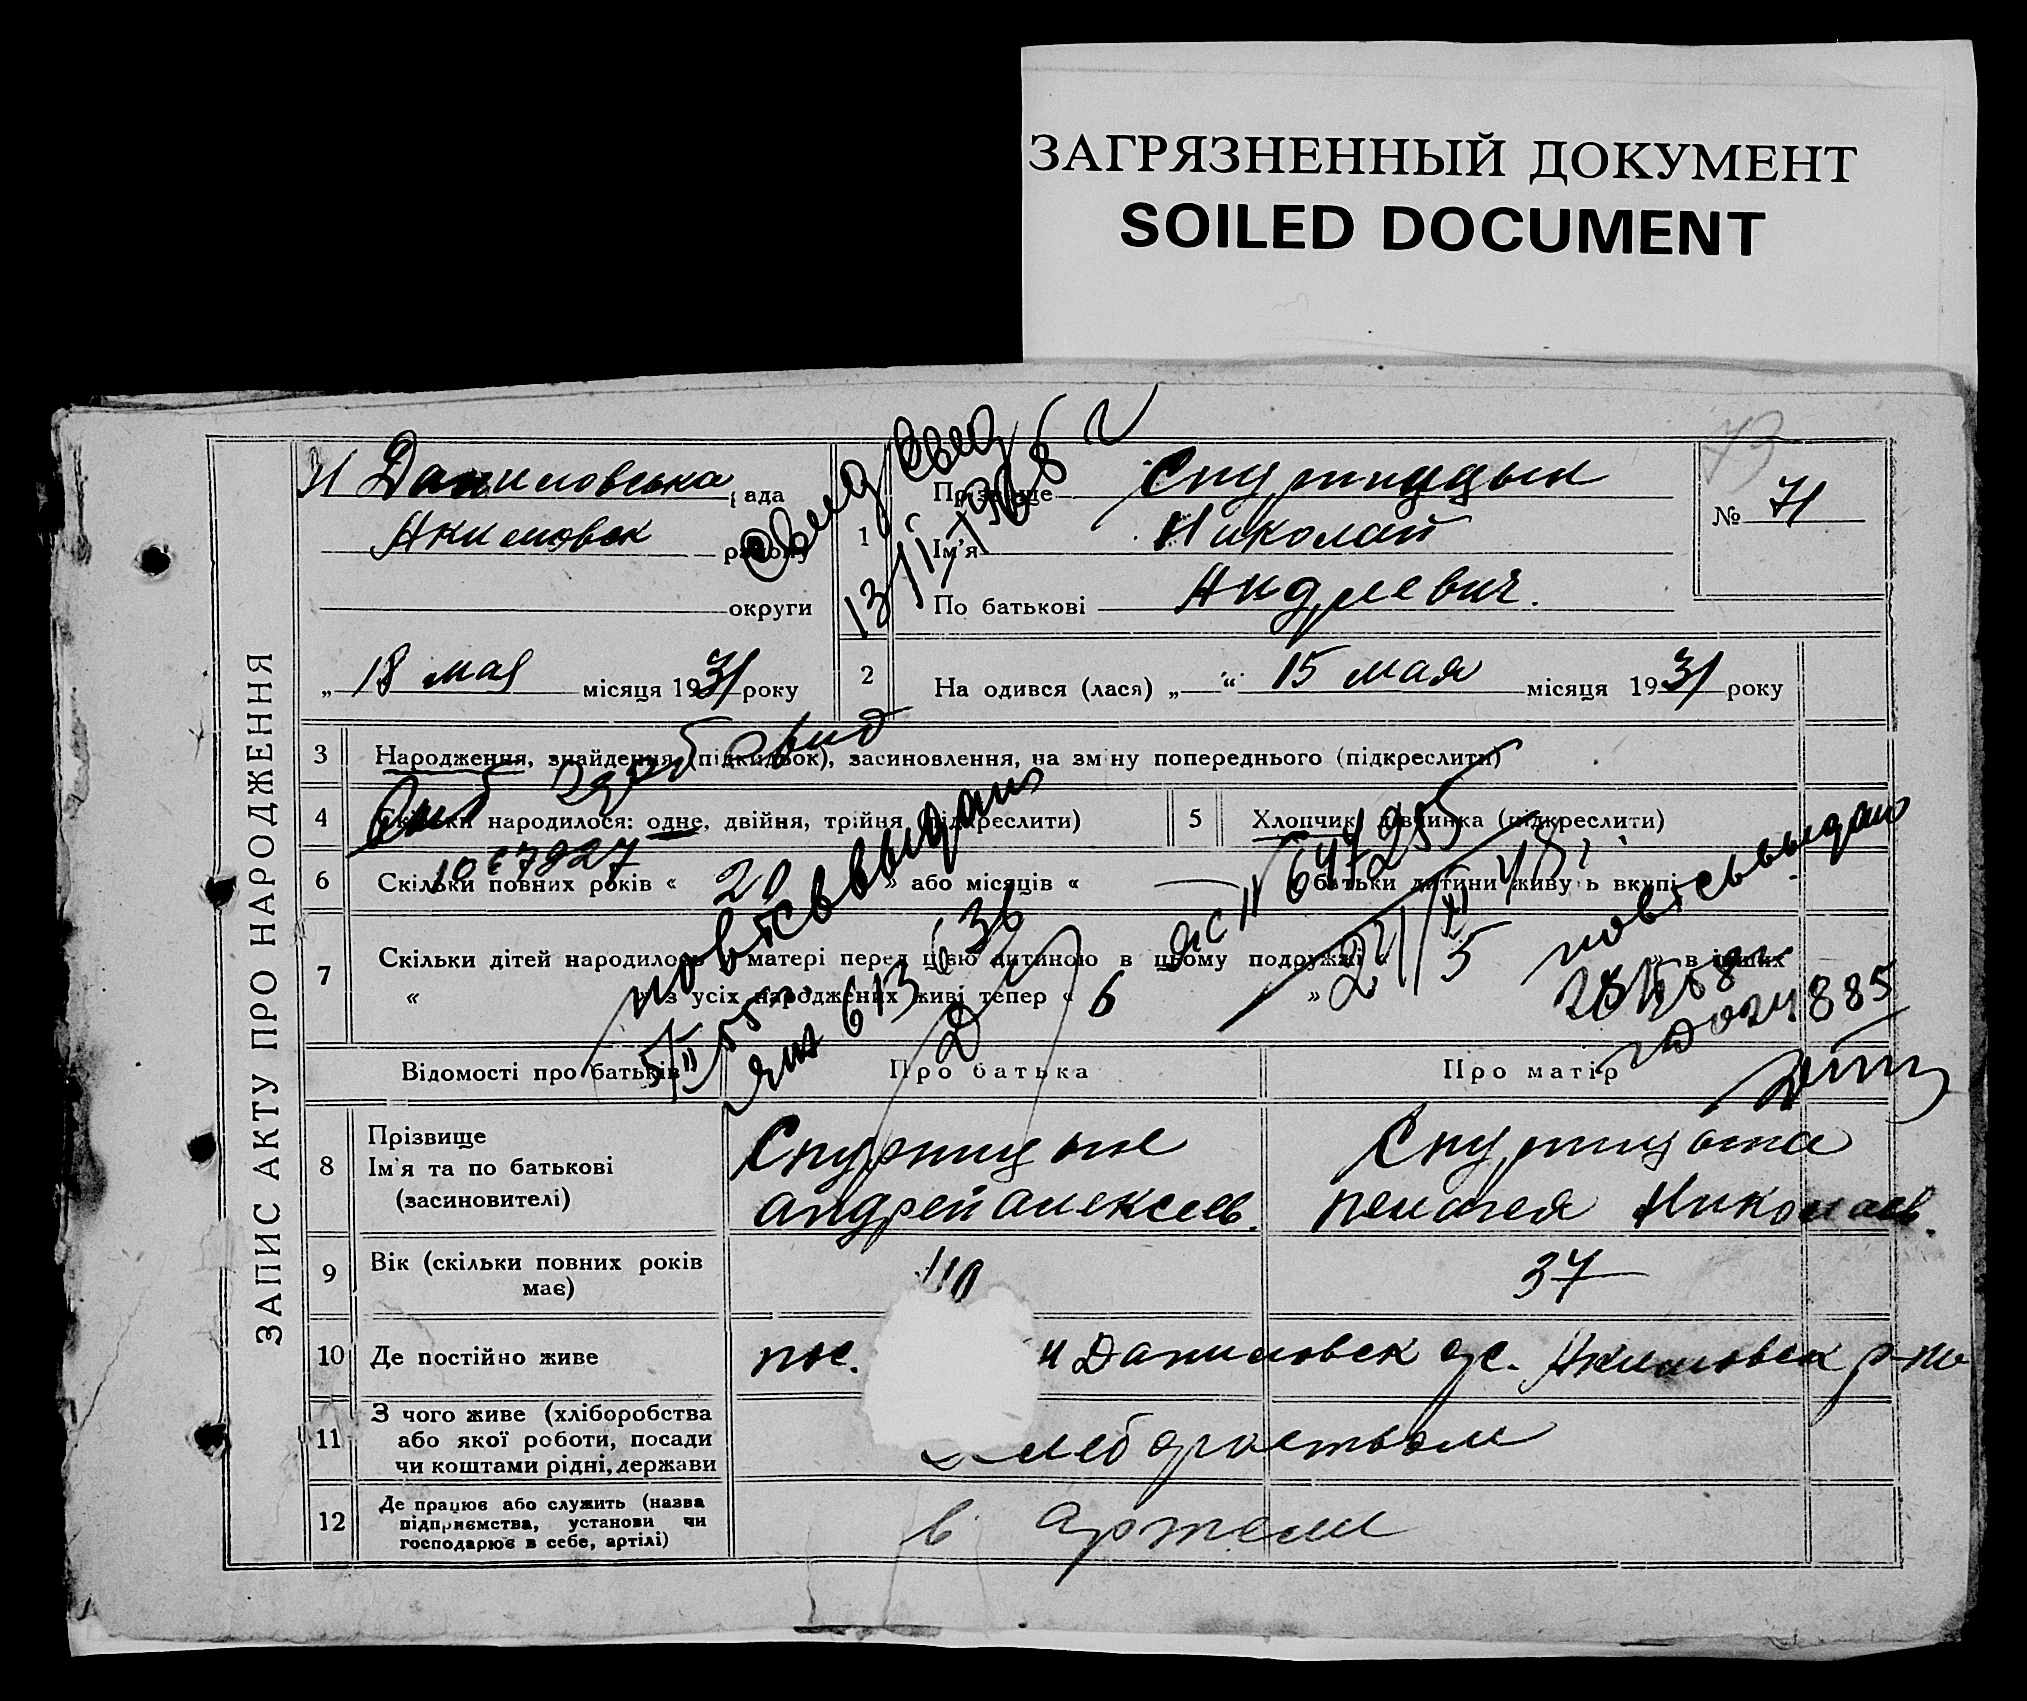 ЗАГРЯЗНЕННЫЙ ДОКУМЕНТ
SOILED DOCUMENT
73
ЗАПИС АКТУ ПРО НАРОДЖЕННЯ
Н Даниловська рада
Акимовск району
округи
„ 18 мая місяця 1931 року
1 Прізвище Спурницын
Ім'я Николай
По батькові Андреевич.
№ 71
2 На одився (лася) „ “ 15 мая місяця 1931 року
3 Народження, знайдення (підкидьок), засиновлення, на зміну попереднього (підкреслити)
4 Скільки народилося: одне, двійня, трійня (підкреслити)
5 Хлопчик, дівчинка (підкреслити)
1067927
6 Скільки повних років « 20 » або місяців « — батьки дитини живуть вкупі
7 Скільки дітей народилось у матері перед цією дитиною в цьому подружжі « 5 » в інших
« » з усіх народжених живі тепер « 6 »
13/II-1968 г
повт св выдано
5/II 55 г.
613636
647295
повт св выдано
024885
Відомості про батьків Про батька Про матір
8 Прізвище
Ім'я та по батькові
(засиновителі)
Спурницын
Андрей Алексеев.
Спурницына
Пелагея Николаев.
9 Вік (скільки повних років
має)
40
37
10 Де постійно живе
пос. Н Даниловск с/с. Акимовск р-на
11 З чого живе (хліборобства
або якої роботи, посади
чи коштами рідні, держави
хлеборобством
12 Де працює або служить (назва
підприємства, установи чи
господарює в себе, артілі)
в Артели